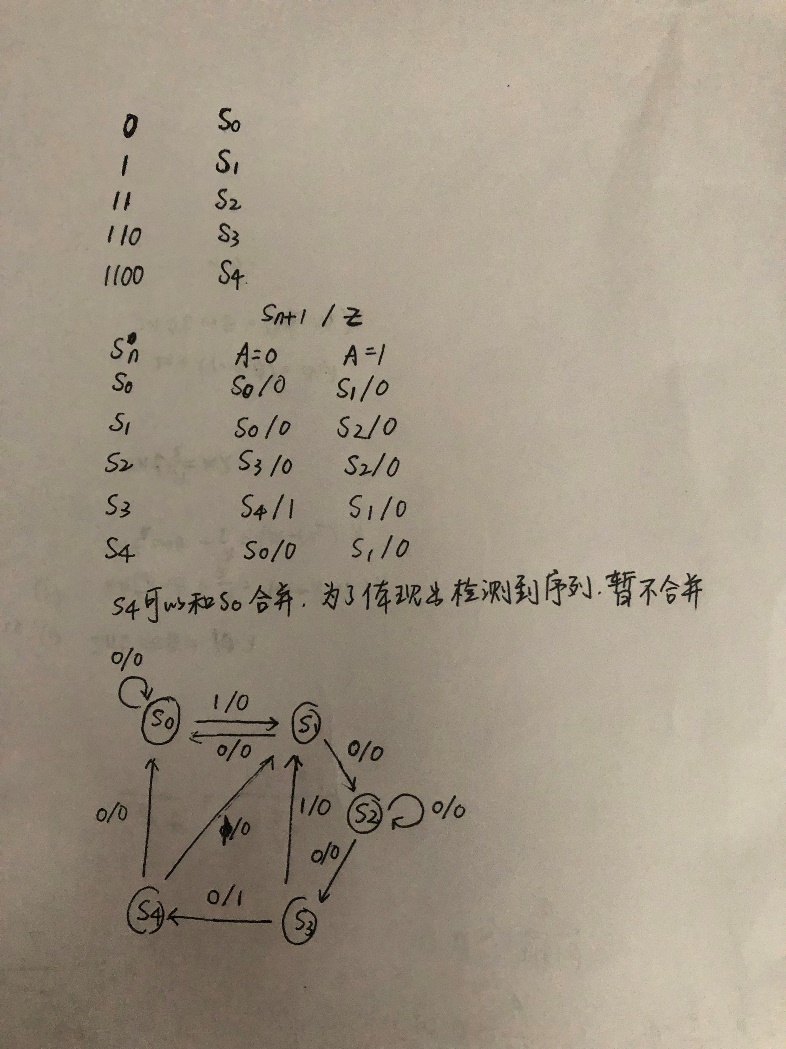 0 S0
1 S1
11 S2
110 S3
1100 S4
Sn+1 / Z
Sn A=0 A=1
S0 S0/0 S1/0
S1 S0/0 S2/0
S2 S3/0 S2/0
S3 S4/1 S1/0
S4 S0/0 S1/0
S4可以和S0合并.为了体现出检测到序列.暂不合并
0/0
S0 1/0 S1
0/0 0/0
0/0 1/0 S2 0/0
/0 0/0
S4 0/1 S3